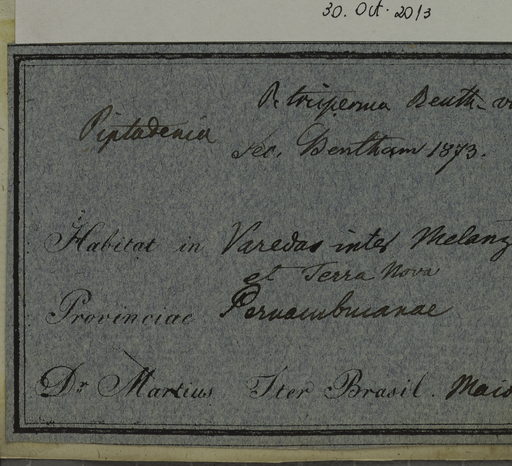 30. Oct. 2013
Piptadenia
Benth.
sec. Bentham 1873.
Habitat in Varedas inter Melanz
et Terra Nova
Provinciae Pernambucanae
Dr. Martius Iter Brasil. Maio